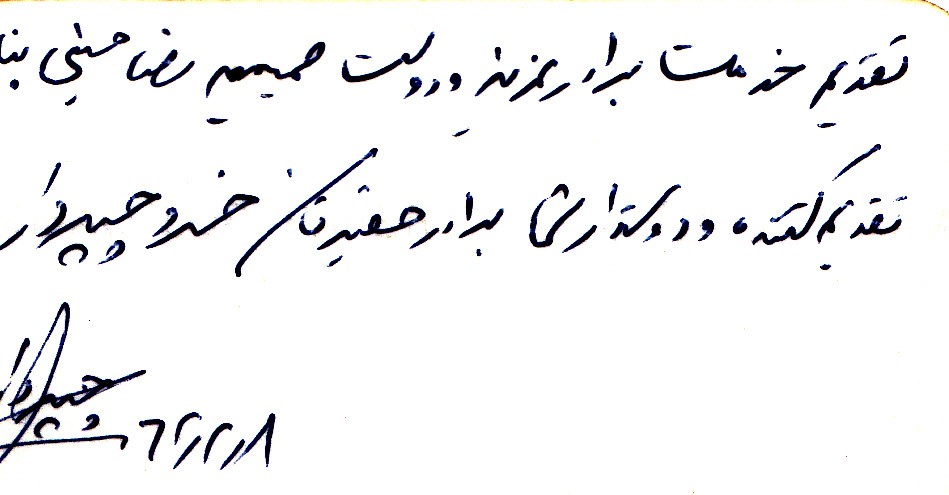 تقدیم خدمت برادر عزیز و دوست صمیمیم رضا حسینی
تقدیم کننده و دوستدار شما برادر حقیرتان خسرو چپردار
۶۲/۲/۸